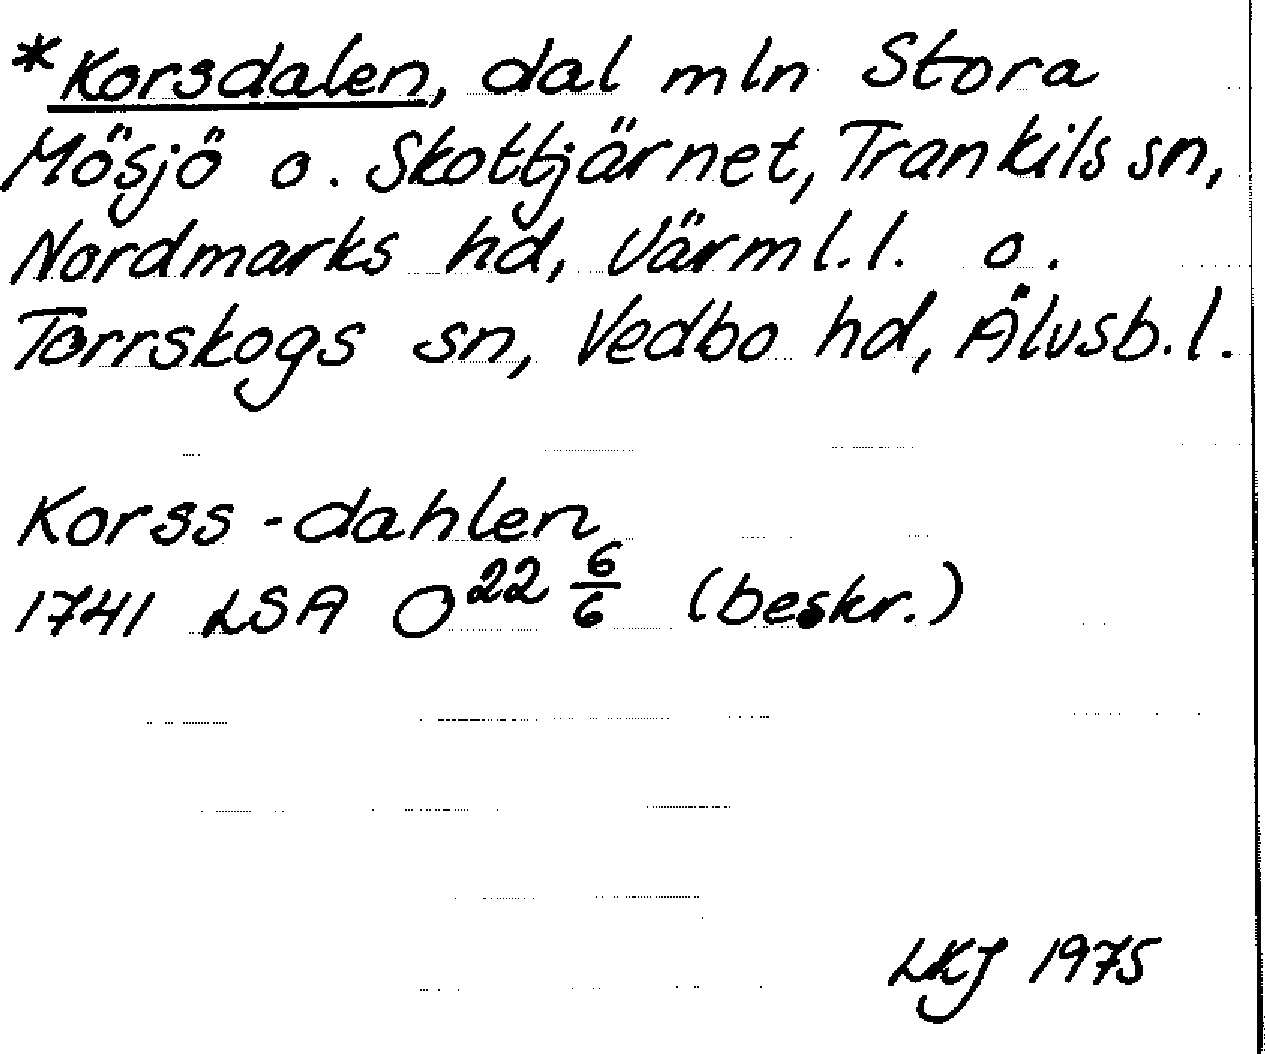 *Korsdalen, dal mln Stora
Mösjö o. Skottjärnet, Trankils sn,
Nordmarks hd, Värml.l. o.
Torrskogs sn, Vedbo hd, Älvsb.l.
Korss-dahlen
1741 LSA O²² 6/6 (beskr.)
LKJ 1975